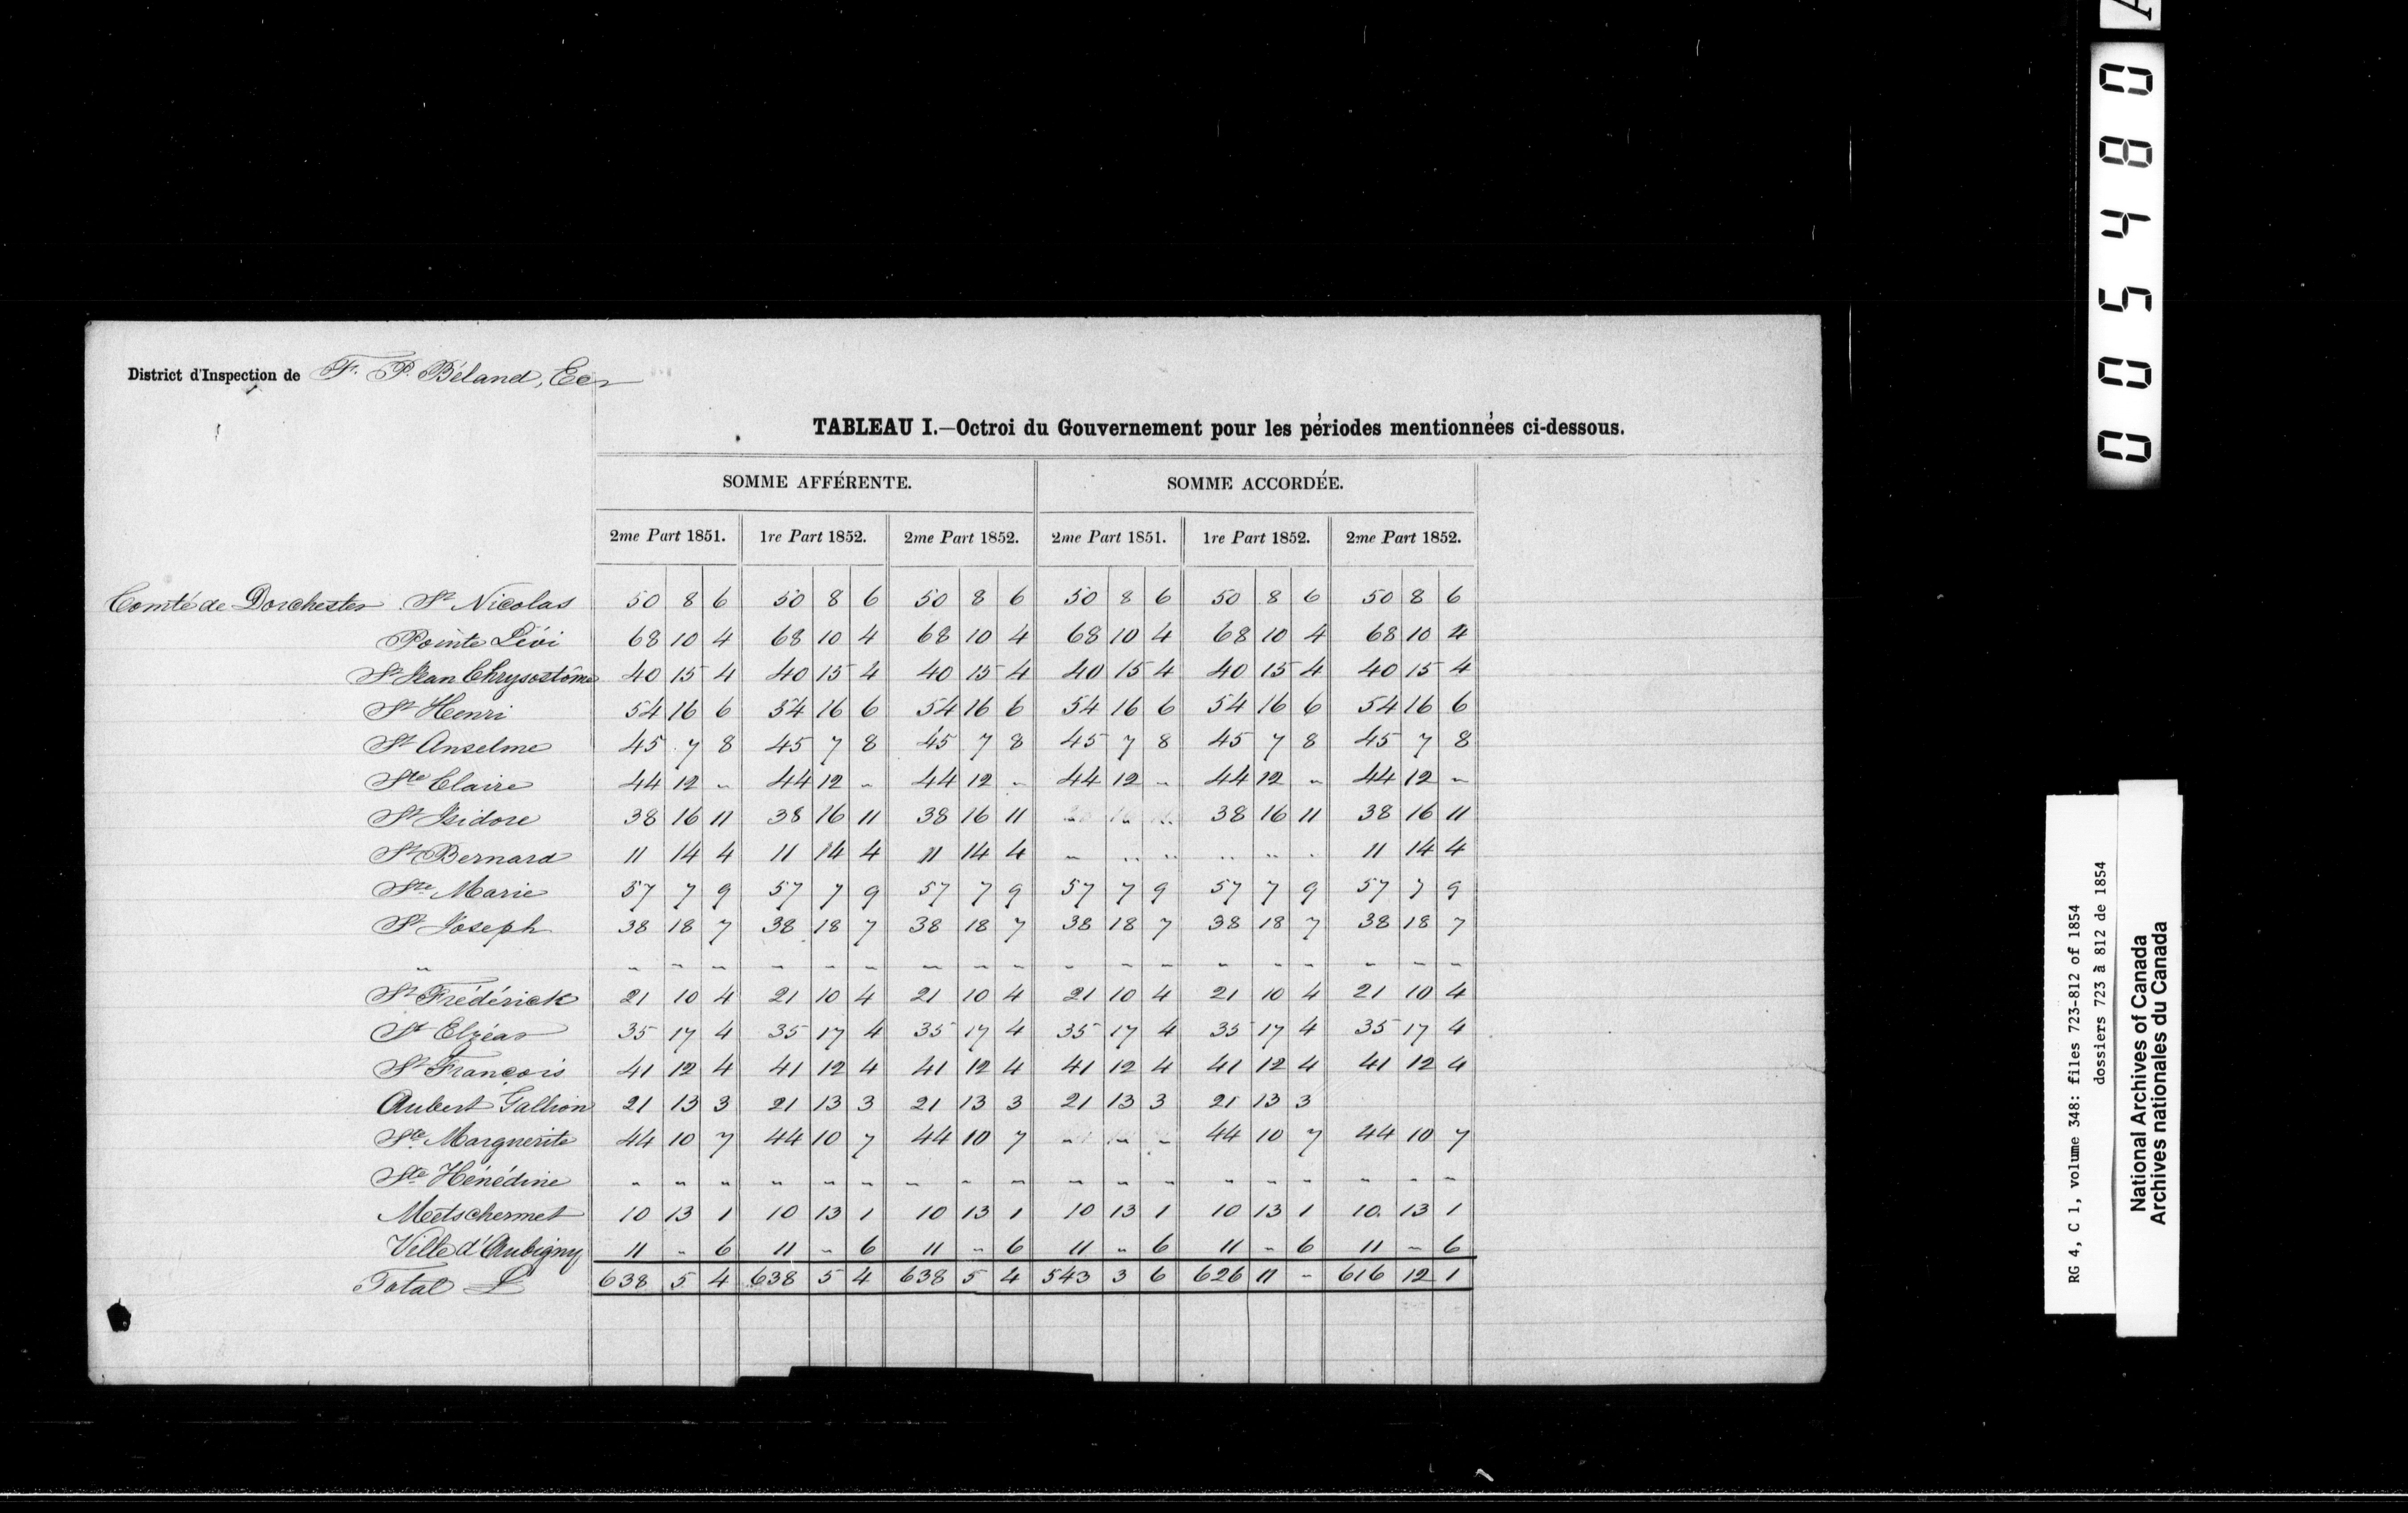 District d'Inspection de F. P. Béland, Ecr
TABLEAU I.—Octroi du Gouvernement pour les périodes mentionnées ci-dessous.
SOMME AFFÉRENTE. SOMME ACCORDÉE.
2me Part 1851. 1re Part 1852. 2me Part 1852. 2me Part 1851. 1re Part 1852. 2me Part 1852.
Comté de Dorchester St Nicolas 50 8 6 50 8 6 50 8 6 50 8 6 50 8 6 50 8 6
Pointe Lévi 68 10 4 68 10 4 68 10 4 68 10 4 68 10 4 68 10 4
St Jean Chrysostôme 40 15 4 40 15 4 40 15 4 40 15 4 40 15 4 40 15 4
St Henri 54 16 6 54 16 6 54 16 6 54 16 6 54 16 6 54 16 6
St Anselme 45 7 8 45 7 8 45 7 8 45 7 8 45 7 8 45 7 8
Ste Claire 44 12 " 44 12 " 44 12 " 44 12 " 44 12 " 44 12 "
St Isidore 38 16 11 38 16 11 38 16 11 " " " 38 16 11 38 16 11
St Bernard 11 14 4 11 14 4 11 14 4 " " " " " " 11 14 4
Ste Marie 57 7 9 57 7 9 57 7 9 57 7 9 57 7 9 57 7 9
St Joseph 38 18 7 38 18 7 38 18 7 38 18 7 38 18 7 38 18 7
" " " " " " " " " " " " " " " " " " "
St Frédérick 21 10 4 21 10 4 21 10 4 21 10 4 21 10 4 21 10 4
St Elzéar 35 17 4 35 17 4 35 17 4 35 17 4 35 17 4 35 17 4
St François 41 12 4 41 12 4 41 12 4 41 12 4 41 12 4 41 12 4
Aubert Gallion 21 13 3 21 13 3 21 13 3 21 13 3 21 13 3
Ste Marguerite 44 10 7 44 10 7 44 10 7 " " " 44 10 7 44 10 7
Ste Hénédine " " " " " " " " " " " " " " " " " "
Metschermet 10 13 1 10 13 1 10 13 1 10 13 1 10 13 1 10 13 1
Ville d'Aubigny 11 " 6 11 " 6 11 " 6 11 " 6 11 " 6 11 " 6
Total £ 638 5 4 638 5 4 638 5 4 543 3 6 626 11 " 616 12 1
005480
RG 4, C 1, volume 348: files 723-812 of 1854
dossiers 723 à 812 de 1854
National Archives of Canada
Archives nationales du Canada